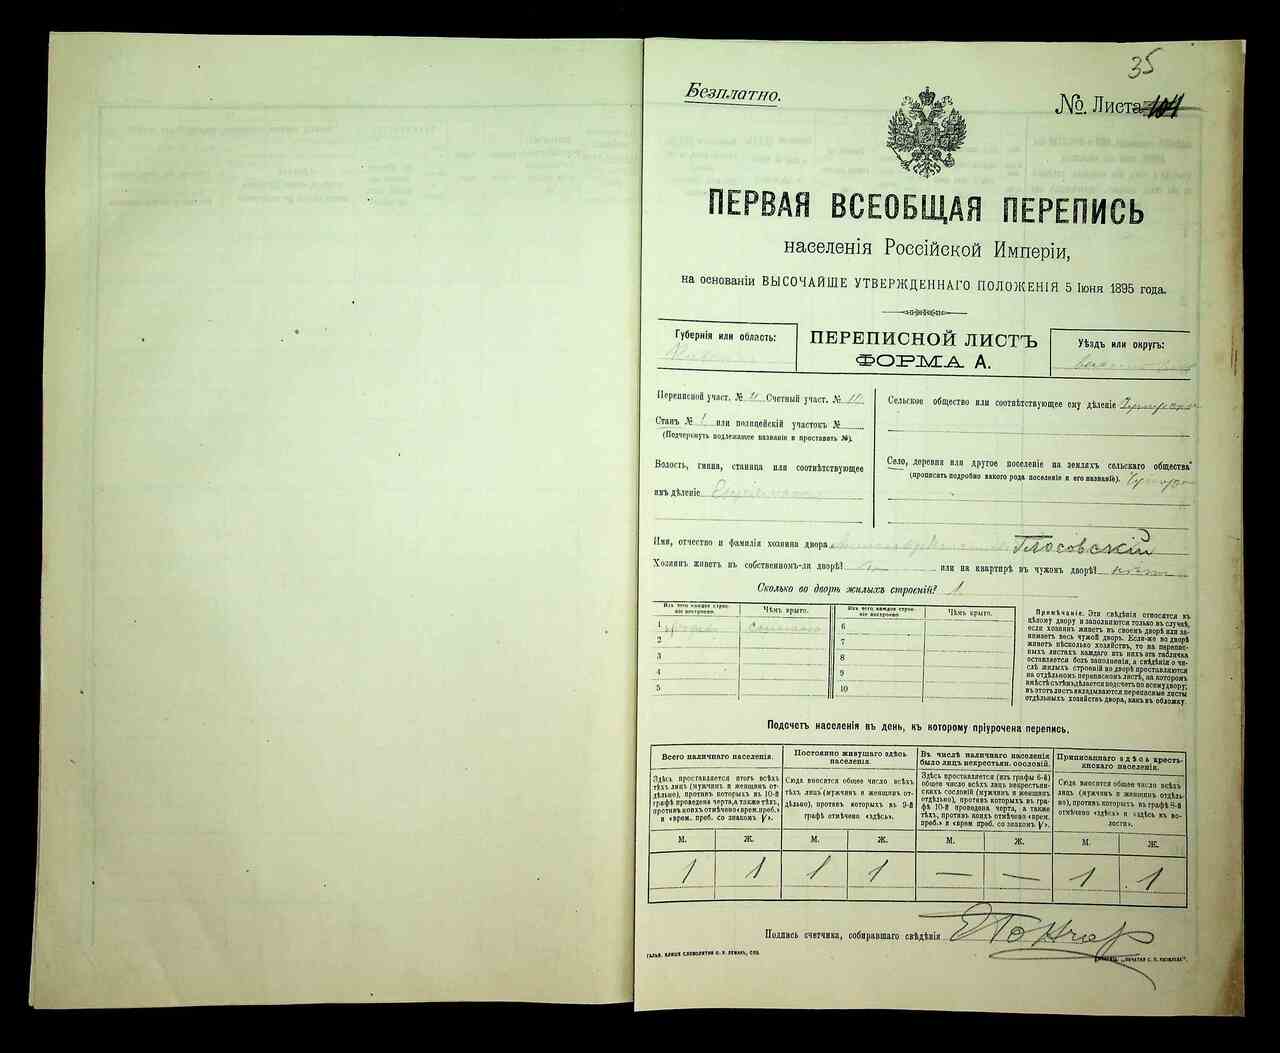 35
Безплатно.
№. Листа 104
ПЕРВАЯ ВСЕОБЩАЯ ПЕРЕПИСЬ
населенія Россійской Имперіи,
на основаніи ВЫСОЧАЙШЕ УТВЕРЖДЕННАГО ПОЛОЖЕНІЯ 5 Іюня 1895 года.
Губернія или область:
ПЕРЕПИСНОЙ ЛИСТЪ
ФОРМА А.
Уѣздъ или округъ:
Переписной участ. № Счетный участ. №
Станъ № 1 или полицейскій участокъ №
(Подчеркнуть подлежащее названіе и проставить №).
Волость, гмина, станица или соотвѣтствующее
имъ дѣленіе
Сельское общество или соотвѣтствующее ему дѣленіе
Село, деревня или другое поселеніе на земляхъ сельскаго общества
(прописать подробно какого рода поселеніе и его названіе).
Имя, отчество и фамилія хозяина двора Глосовскій
Хозяинъ живетъ въ собственномъ-ли дворѣ? или на квартирѣ въ чужомъ дворѣ?
Сколько во дворѣ жилыхъ строеній? 1.
Изъ чего каждое строеніе построено.
Чѣмъ крыто.
Изъ чего каждое строеніе построено.
Чѣмъ крыто.
1 6
2 7
3 8
4 9
5 10
Примѣчаніе. Эти свѣдѣнія относятся къ
цѣлому двору и заполняются только въ случаѣ,
если хозяинъ живетъ въ своемъ дворѣ или занимаетъ
весь чужой дворъ. Если-же во дворѣ
живетъ нѣсколько хозяйствъ, то на переписныхъ
листахъ каждаго изъ нихъ эта табличка
оставляется безъ заполненія, а свѣдѣнія о числѣ
жилыхъ строеній во дворѣ проставляются
на отдѣльномъ переписномъ листѣ, на которомъ
вмѣстѣ съ тѣмъ дѣлается подсчетъ по всему двору;
въ этотъ листъ вкладываются переписные листы
отдѣльныхъ хозяйствъ двора, какъ въ обложку.
Подсчетъ населенія въ день, къ которому пріурочена перепись.
Всего наличнаго населенія.
Здѣсь проставляется итогъ всѣхъ
тѣхъ лицъ (мужчинъ и женщинъ отдѣльно),
противъ которыхъ въ 10-й
графѣ проведена черта, а также тѣхъ,
противъ коихъ отмѣчено «врем. преб.»
и «врем. преб. со знакомъ V».
Постоянно живущаго здѣсь
населенія.
Сюда вносится общее число всѣхъ
тѣхъ лицъ (мужчинъ и женщинъ отдѣльно),
противъ которыхъ въ 9-й
графѣ отмѣчено «здѣсь».
Въ числѣ наличнаго населенія
было лицъ некрестьян. сословій.
Здѣсь проставляется (изъ графы 6-й)
общее число всѣхъ лицъ некрестьянскихъ
сословій (мужчинъ и женщинъ
отдѣльно), противъ которыхъ въ графѣ
10-й проведена черта, а также
тѣхъ, противъ коихъ отмѣчено «врем.
преб.» и «врем. преб. со знакомъ V».
Приписаннаго здѣсь крестьянскаго
населенія.
Сюда вносится общее число всѣхъ
лицъ (мужчинъ и женщинъ отдѣльно),
противъ которыхъ въ графѣ 8-й
отмѣчено «здѣсь» и «здѣсь въ волости».
М. Ж. М. Ж. М. Ж. М. Ж.
1 1 1 1 — — 1 1
Подпись счетчика, собиравшаго свѣдѣнія